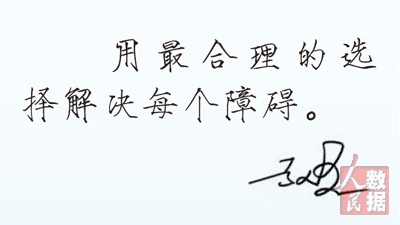 用最合理的选
择解决每个障碍。
人民数据